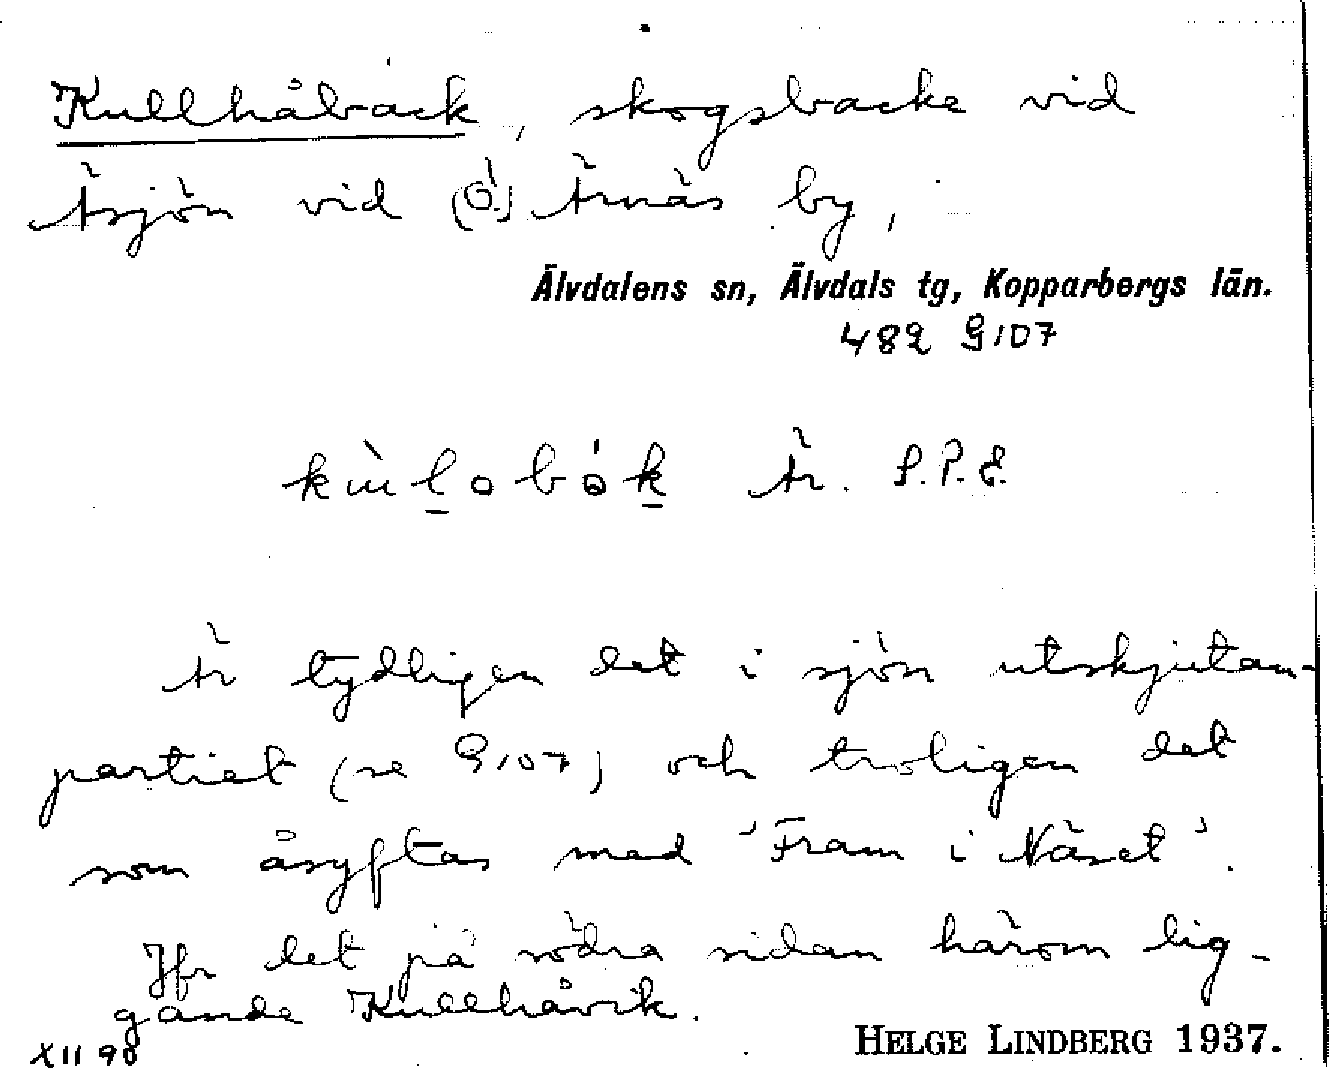 Kullhåback, skogsbacke vid
Äsjön vid (Ö.) Ärnäs by,
Älvdalens sn, Älvdals tg, Kopparbergs län.
482 G107
Är. S.P.E.
Är tydligen det i sjön utskjutan-
partiet (se G107) och troligen det
som åsyftas med 'Fram i Näset'.
Jfr det på södra sidan härom lig-
gande Kullhåvik.
XII 90
HELGE LINDBERG 1937.